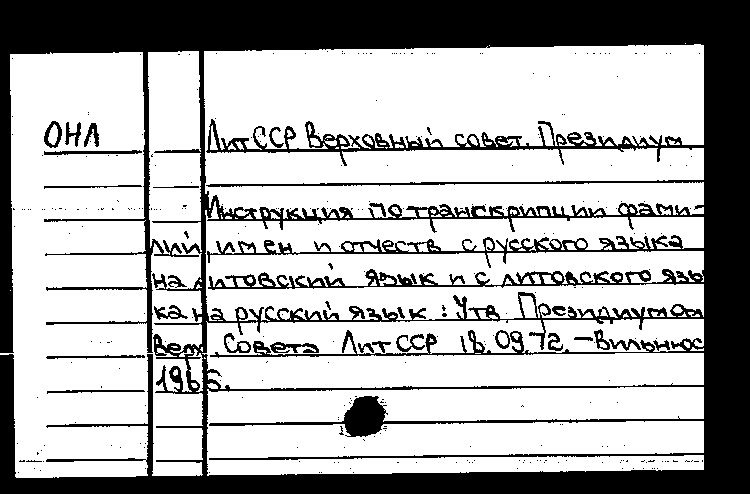 ОНЛ
ЛитССР Верховный совет. Президиум.
Инструкция по транскрипции фами-
лий, имен и отчеств с русского языка
на литовский язык и с литовского язы
ка на русский язык : Утв. Президиумом
Верх. Совета ЛитССР 18.09.72. – Вильнюс
1985.